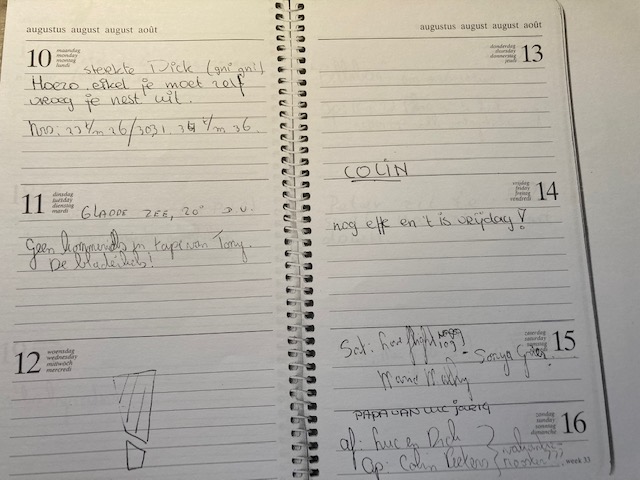 augustus august august août
10 maandag monday montag lundi
sterkte Dick (gni gni)
Hoezo eikel je moet zelf
vroeg je nest uit.
nrs. 23 t/m 26/3031. t/m 36.
11 dinsdag tuesday dienstag mardi
GLADDE ZEE, 20°
Geen in tape van Tony.
De
12 woensdag wednesday mittwoch mercredi
augustus august august août
donderdag thursday donnerstag jeudi 13
COLIN
vrijdag friday freitag vendredi 14
nog effe en 't is vrijdag!
zaterdag saturday samstag samedi 15
Sat:
- Sonya
PAPA VAN LUC JARIG
zondag sunday sonntag dimanche 16
af: Luc en Dick
Op: Colin Peeters
week 33